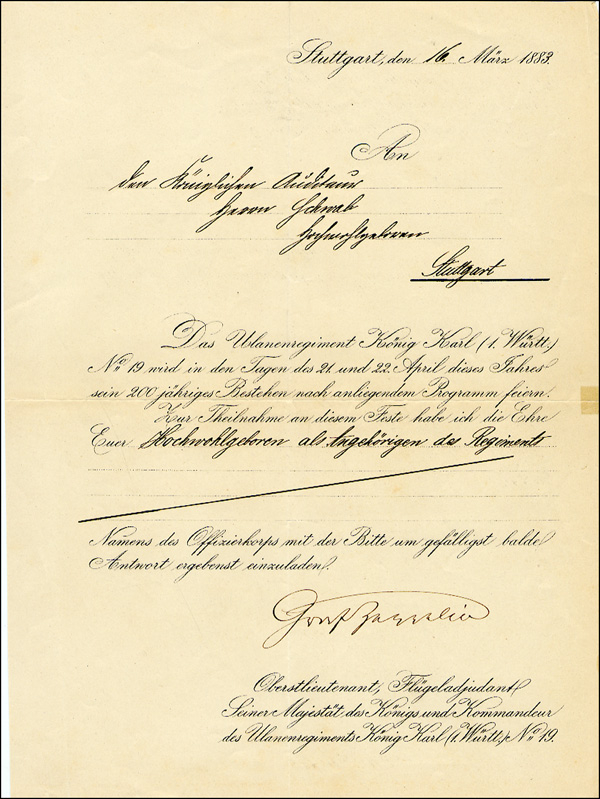 Stuttgart, den 16. März 1883.
An
den Königlichen Auditeur
Herrn Schwab
Hochwohlgeboren
Stuttgart
Das Ulanenregiment König Karl (1. Württ.)
No. 19 wird in den Tagen des 21. und 22. April dieses Jahres
sein 200 jähriges Bestehen nach anliegendem Programm feiern.
Zur Theilnahme an diesem Feste habe ich die Ehre
Euer Hochwohlgeboren als Angehörigen des Regiments
Namens des Offizierkorps mit der Bitte um gefälligst balde
Antwort ergebenst einzuladen.
Graf Zeppelin
Oberstlieutenant, Flügeladjudant
Seiner Majestät des Königs und Kommandeur
des Ulanenregiments König Karl (1. Württ.) No. 19.